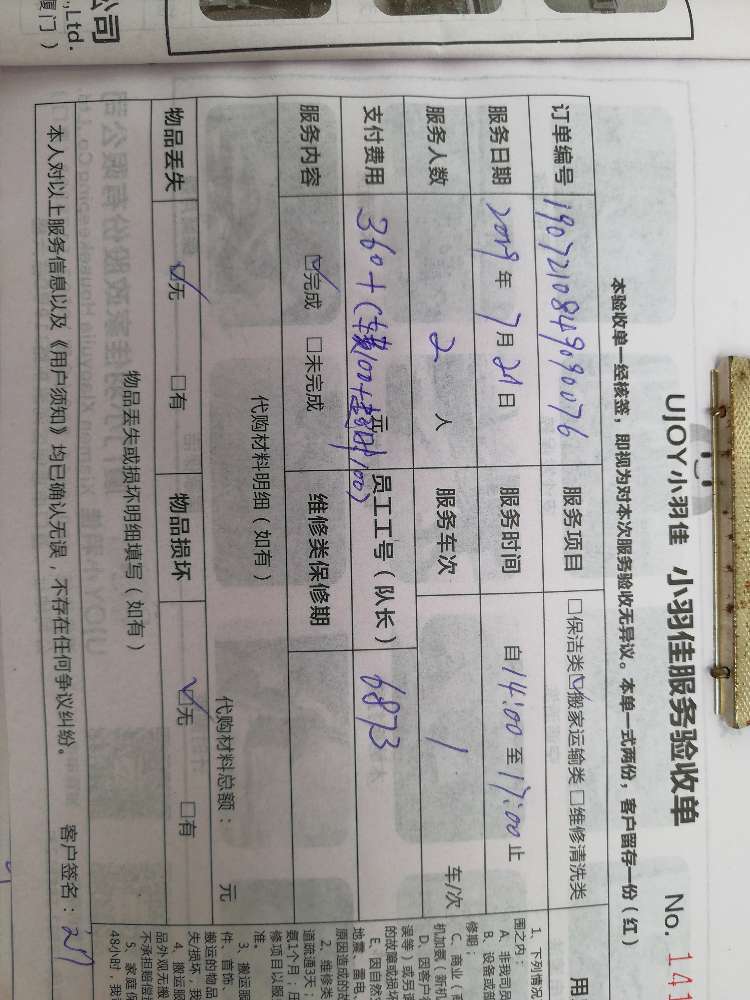 公司
., Ltd.
厦门）
UJOY小羽佳 小羽佳服务验收单 No. 141
本验收单一经核签，即视为对本次服务验收无异议。本单一式两份，客户留存一份（红）
订单编号 1907210849090076 服务项目 □保洁类 ☑搬家运输类 □维修清洗类
服务日期 2019 年 7 月 21 日 服务时间 自 14:00 至 17:00 止
服务人数 2 人 服务车次 1 车/次
支付费用 360+(车费100+超时100) 元 员工工号（队长） 6873
服务内容 ☑完成 □未完成 维修类保修期
代购材料明细（如有）
代购材料总额： 元
物品丢失 ☑无 □有 物品损坏 ☑无 □有
物品丢失或损坏明细填写（如有）
本人对以上服务信息以及《用户须知》均已确认无误，不存在任何争议纠纷。 客户签名：
用
1、下列情况
围之内：
A、非我司员
B、设备或部
修期；
C、商业（商
机加氨（新机
D、因客户
误等）或另请
的故障或损坏
E、因自然
地震、雷电、
原因造成的故
2、维修类
道疏通3天；
氨1个月；压
修项目以服
准。
3、搬运服
件、首饰
搬运的物品
失/损坏，我
4、搬运服
品外观无搬
不承担赔偿
5、家庭保
48小时，我